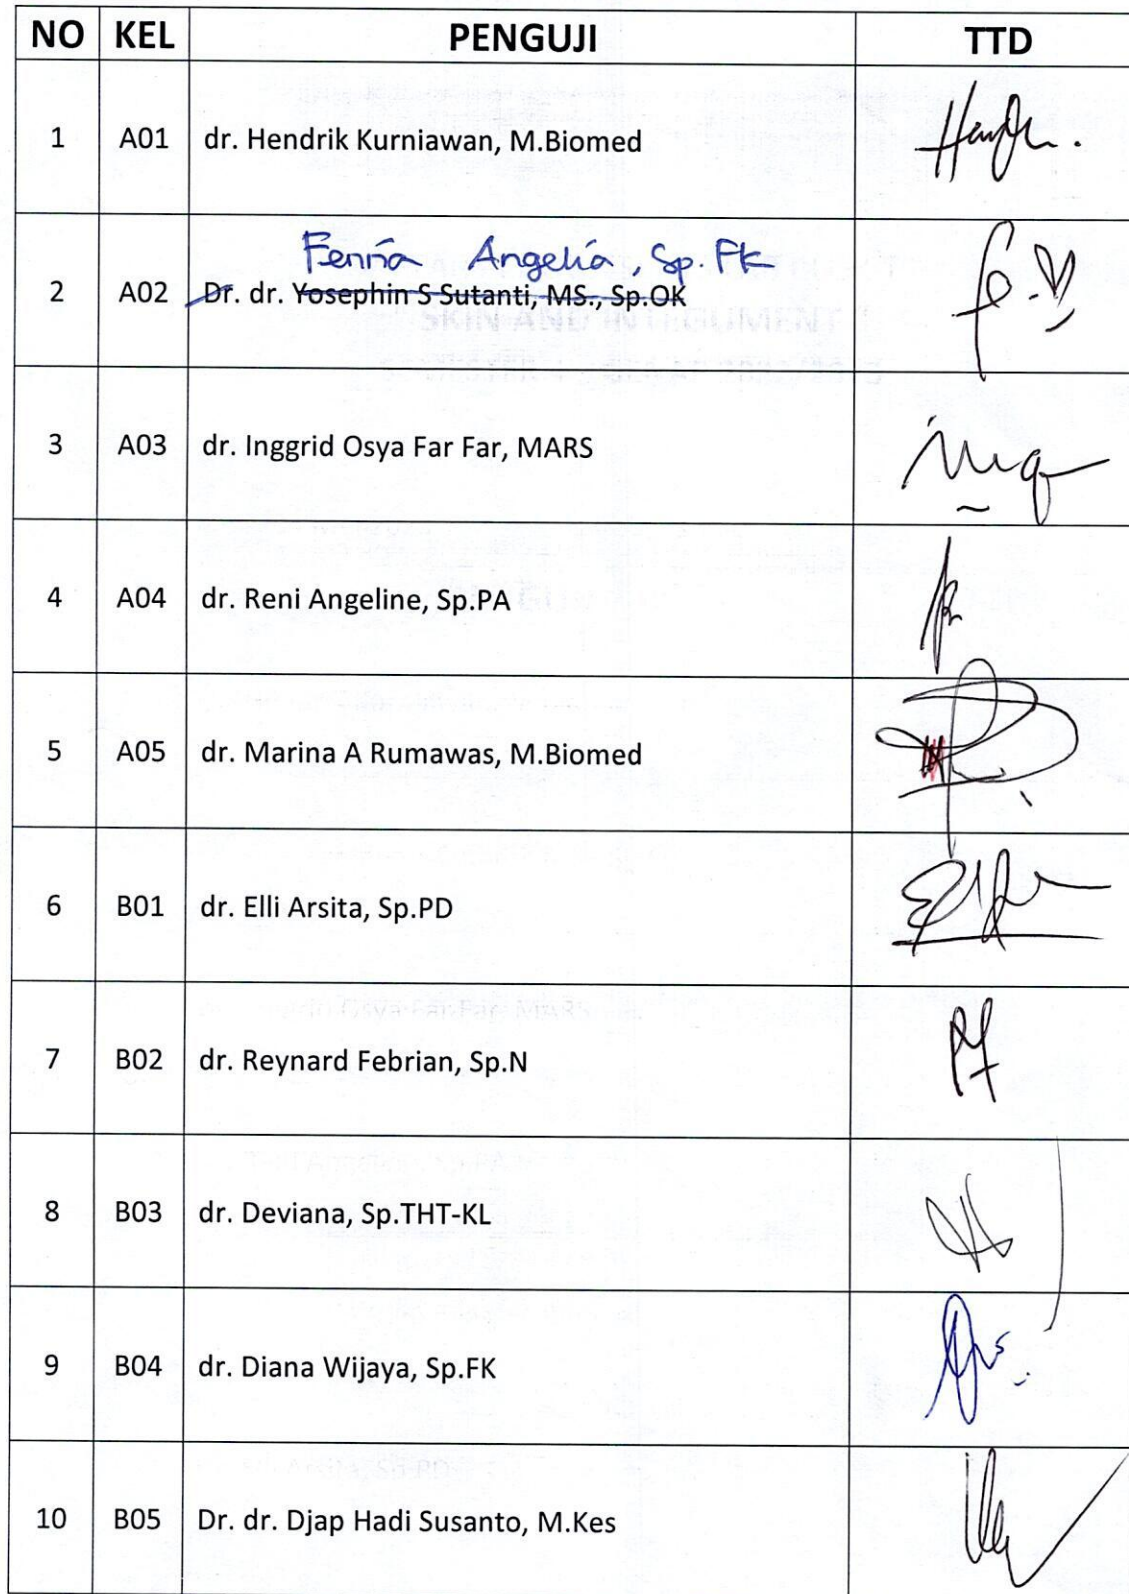 NO KEL PENGUJI TTD
1 A01 dr. Hendrik Kurniawan, M.Biomed
Fennia Angelia, Sp.FK
2 A02 Dr. dr. Yosephin S Sutanti, MS., Sp.OK
3 A03 dr. Inggrid Osya Far Far, MARS
4 A04 dr. Reni Angeline, Sp.PA
5 A05 dr. Marina A Rumawas, M.Biomed
6 B01 dr. Elli Arsita, Sp.PD
7 B02 dr. Reynard Febrian, Sp.N
8 B03 dr. Deviana, Sp.THT-KL
9 B04 dr. Diana Wijaya, Sp.FK
10 B05 Dr. dr. Djap Hadi Susanto, M.Kes